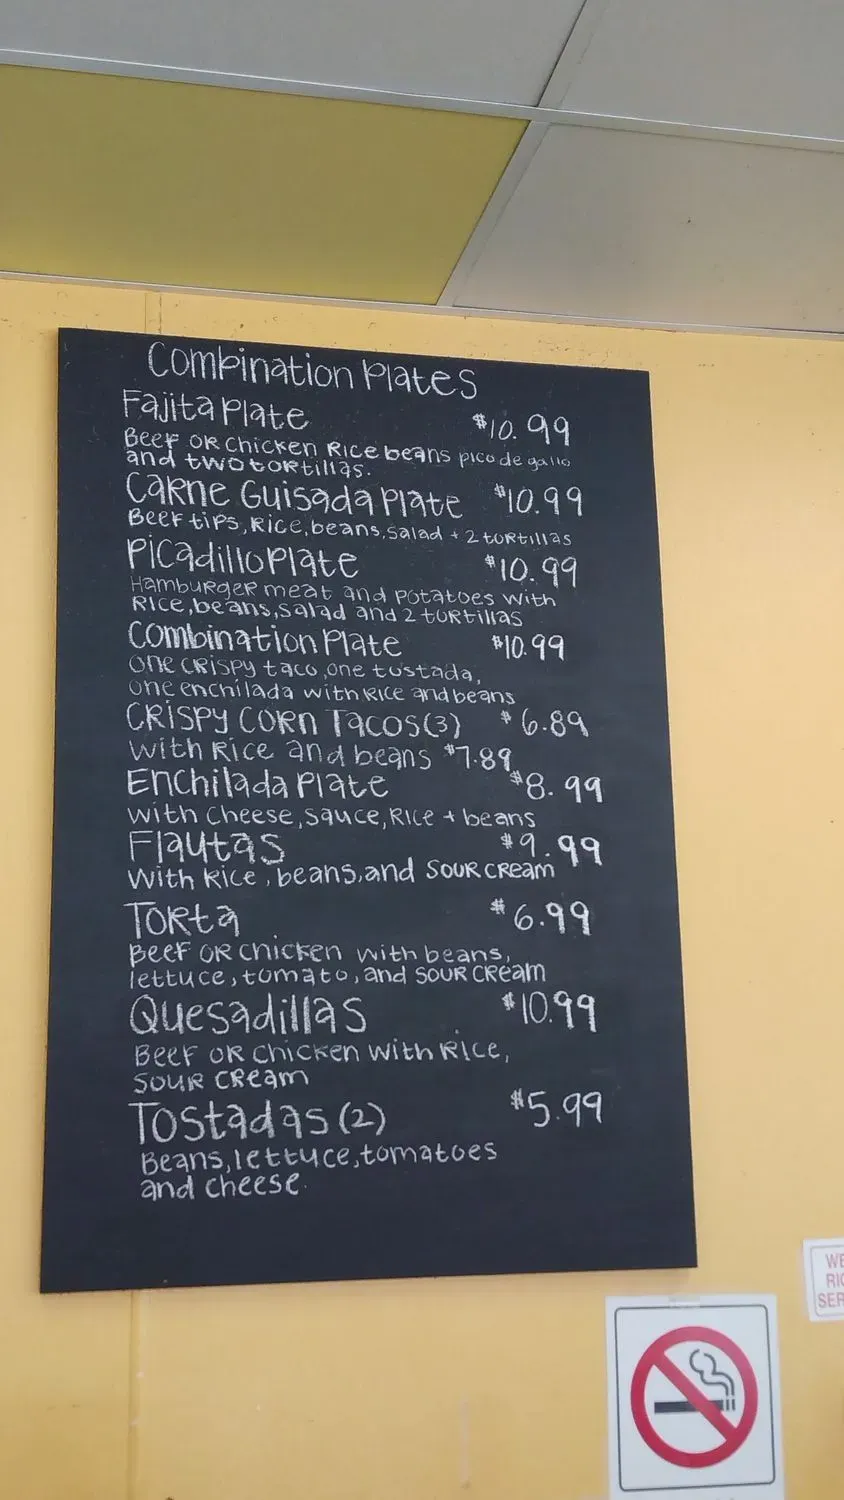 Combination Plates
Fajita Plate $10.99
Beef or chicken Rice beans pico de gallo
and two tortillas.
Carne Guisada Plate $10.99
Beef tips, Rice, beans, salad + 2 tortillas
Picadillo Plate $10.99
Hamburger meat and potatoes with
Rice, beans, salad and 2 tortillas
Combination Plate $10.99
One crispy taco, one tostada,
one enchilada with rice and beans
Crispy Corn Tacos (3) $6.89
with Rice and beans $7.89
Enchilada Plate $8.99
with cheese, sauce, Rice + beans
Flautas $9.99
with Rice, beans, and sour cream
Torta $6.99
Beef or chicken with beans,
lettuce, tomato, and sour cream
Quesadillas $10.99
Beef or chicken with Rice,
sour cream
Tostadas (2) $5.99
Beans, lettuce, tomatoes
and cheese.
WE